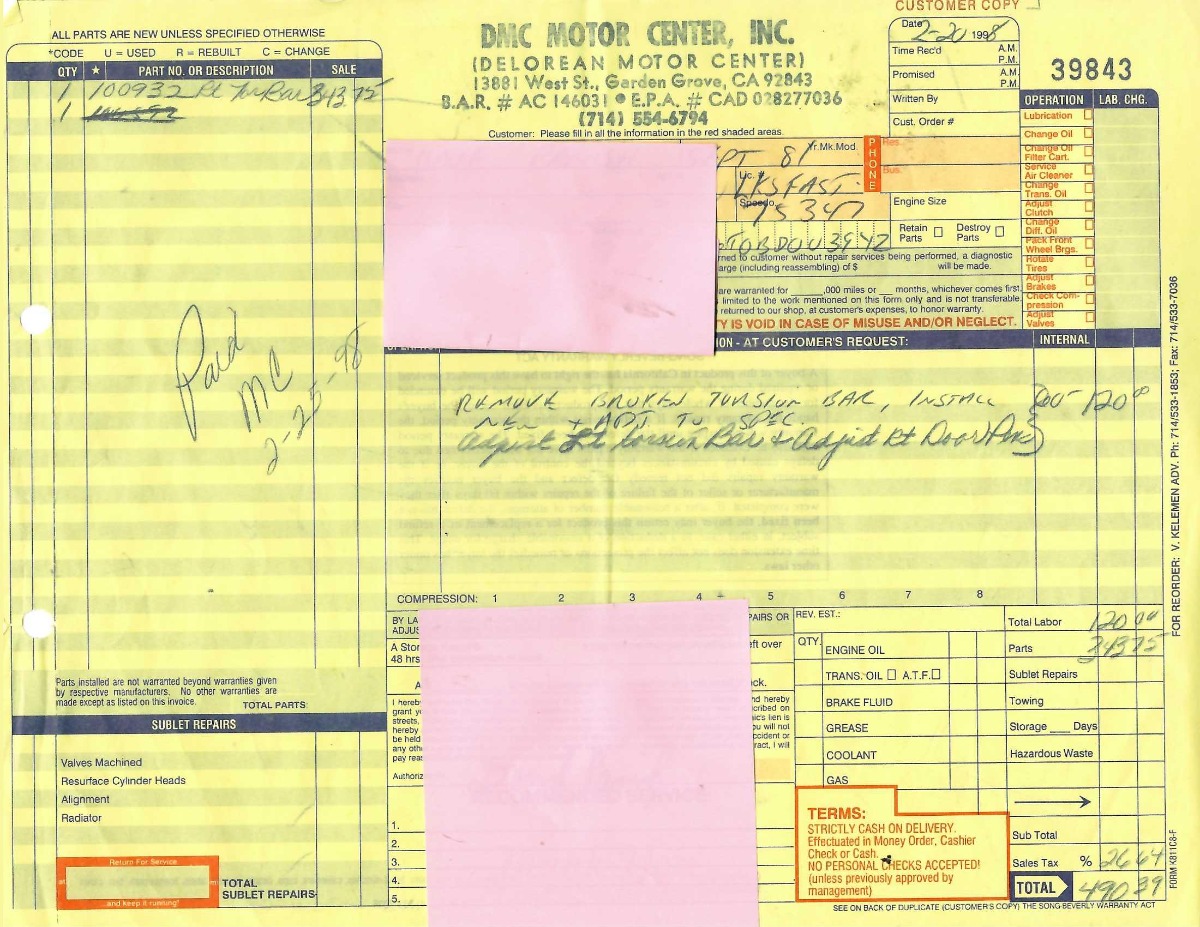 CUSTOMER COPY
ALL PARTS ARE NEW UNLESS SPECIFIED OTHERWISE
*CODE U = USED R = REBUILT C = CHANGE
QTY ★ PART NO. OR DESCRIPTION SALE
1 100932 Rt Tor Bar 343 75
1
Paid
MC
2-25-98
Parts installed are not warranted beyond warranties given
by respective manufacturers. No other warranties are
made except as listed on this invoice.
TOTAL PARTS:
SUBLET REPAIRS
Valves Machined
Resurface Cylinder Heads
Alignment
Radiator
Return For Service
at mi
...and keep it running!
TOTAL
SUBLET REPAIRS
DMC MOTOR CENTER, INC.
(DELOREAN MOTOR CENTER)
13881 West St., Garden Grove, CA 92843
B.A.R. # AC 146031 • E.P.A. # CAD 028277036
(714) 554-6794
Customer: Please fill in all the information in the red shaded areas.
Date 2-20 1998
Time Rec'd A.M.
P.M.
Promised A.M.
P.M.
Written By
Cust. Order #
39843
Yr.Mk.Mod.
PT 81
PHONE
Res.
Bus.
Lic. #
LKSFAST
Speedo
75347
Engine Size
Retain Parts
Destroy Parts
rned to customer without repair services being performed, a diagnostic
arge (including reassembling) of $ will be made.
are warranted for ,000 miles or months, whichever comes first.
limited to the work mentioned on this form only and is not transferable.
returned to our shop, at customer's expenses, to honor warranty.
Y IS VOID IN CASE OF MISUSE AND/OR NEGLECT.
OPERATION LAB. CHG.
Lubrication
Change Oil
Change Oil
Filter Cart.
Service
Air Cleaner
Change
Trans. Oil
Adjust
Clutch
Change
Diff. Oil
Pack Front
Wheel Brgs.
Rotate
Tires
Adjust
Brakes
Check Com-
pression
Adjust
Valves
ION - AT CUSTOMER'S REQUEST: INTERNAL
REMOVE BROKEN TORSION BAR, INSTALL 120 00
NEW + ADJ TO SPEC.
Adjust Lt torsion Bar & Adjust Rt Door
COMPRESSION: 1 2 3 4 5 6 7 8
BY LA
ADJUS
PAIRS OR
A Stor
48 hrs
eft over
A
ck.
I hereb
grant y
streets,
hereby
be held
any oth
pay rea
nd hereby
cribed on
ic's lien is
ou will not
ccident or
ract, I will
Authoriz
1.
2.
3.
4.
5.
REV. EST.:
QTY.
ENGINE OIL
TRANS. OIL A.T.F.
BRAKE FLUID
GREASE
COOLANT
GAS
TERMS:
STRICTLY CASH ON DELIVERY.
Effectuated in Money Order, Cashier
Check or Cash.
NO PERSONAL CHECKS ACCEPTED!
(unless previously approved by
management)
Total Labor 120 00
Parts 343 75
Sublet Repairs
Towing
Storage ___ Days
Hazardous Waste
Sub Total
Sales Tax % 26 64
TOTAL 490 39
SEE ON BACK OF DUPLICATE (CUSTOMER'S COPY) THE SONG BEVERLY WARRANTY ACT
FOR REORDER: V. KELEMEN ADV. Ph: 714/533-1853; Fax: 714/533-7036
FORM K811C8-F